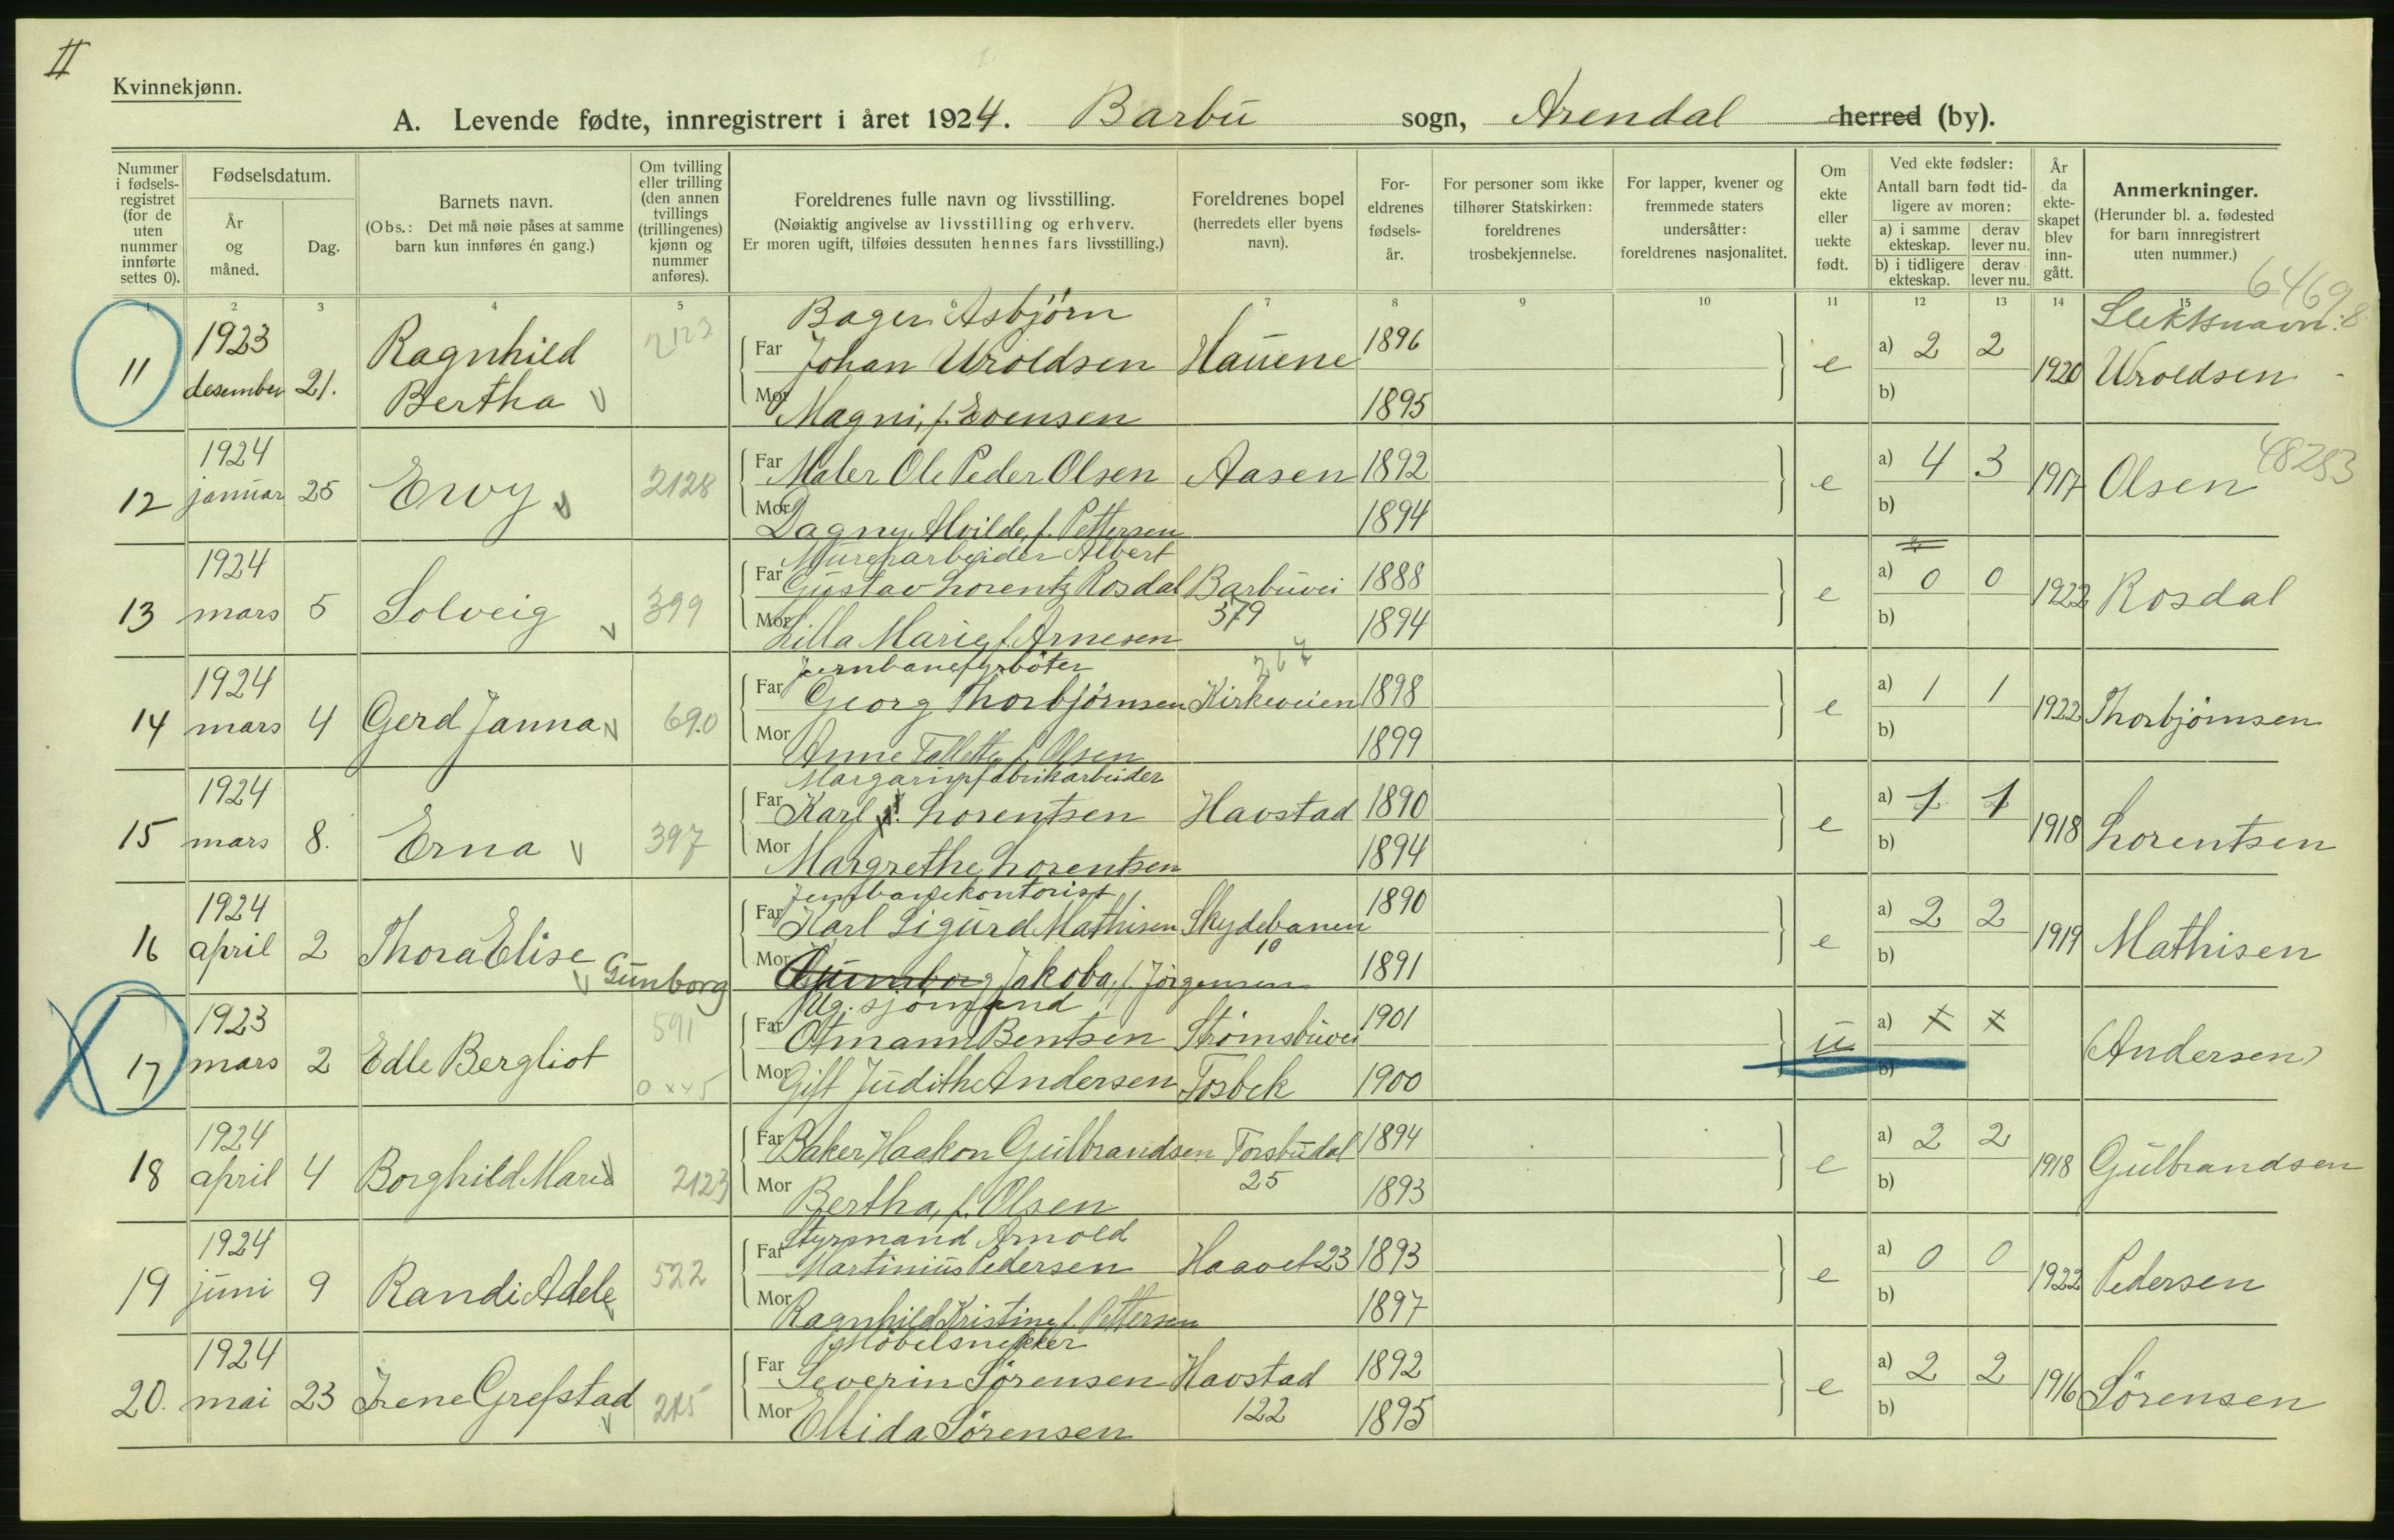 II
Kvinnekjønn.
A. Levende fødte, innregistrert i året 1924. Barbu sogn, Arendal herred (by).
Nummer i fødsels-registret (for de uten nummer innførte settes 0).
Fødselsdatum.
År og måned.
Dag.
Barnets navn.
(Obs.: Det må nøie påses at samme barn kun innføres én gang.)
Om tvilling eller trilling (den annen tvillings (trillingenes) kjønn og nummer anføres).
Foreldrenes fulle navn og livsstilling.
(Nøiaktig angivelse av livsstilling og erhverv.
Er moren ugift, tilføies dessuten hennes fars livsstilling.)
Foreldrenes bopel
(herredets eller byens navn).
For-eldrenes fødsels-år.
For personer som ikke tilhører Statskirken: foreldrenes trosbekjennelse.
For lapper, kvener og fremmede staters undersåtter: foreldrenes nasjonalitet.
Om ekte eller uekte født.
Ved ekte fødsler:
Antall barn født tid-ligere av moren:
a) i samme ekteskap. derav lever nu.
b) i tidligere ekteskap. derav lever nu.
År da ekte-skapet blev inn-gått.
Anmerkninger.
(Herunder bl. a. fødested for barn innregistrert uten nummer.)
1 2 3 4 5 6 7 8 9 10 11 12 13 14 15
6469
Slektsnavn: 8
11 1923 desember 21. Ragnhild Bertha 2123
Bager Asbjörn
Far Johan Uroldsen Hauene 1896 e a) 2 2 1920 Uroldsen
Mor Magni, f. Evensen 1895 b)
12 1924 januar 25 Ervy 2128
Far Maler Ole Peder Olsen Aasen 1892 e a) 4 3 1917 Olsen 48283
Mor Dagny Alvilde, f. Pettersen 1894 b)
13 1924 mars 5 Solveig 399
Murerarbeider Albert
Far Gustav Lorentz Rosdal Barbuvei 379 1888 e a) 0 0 1922 Rosdal
Mor Lilla Marie, f. Arnesen 1894 b)
14 1924 mars 4 Gerd Janna 690
Jernbanefyrböter
Far Georg Thorbjörnsen Kirkeveien 267 1898 e a) 1 1 1922 Thorbjörnsen
Mor Anne Tallette, f. Olsen 1899 b)
15 1924 mars 8. Erna 397
Margarinfabrikarbeider
Far Karl Lorentsen Havstad 1890 e a) 1 1 1918 Lorentsen
Mor Margrethe Lorentsen 1894 b)
16 1924 april 2 Thora Elise
Jernbanekontorist
Far Karl Sigurd Mathisen Skydebanen 10 1890 e a) 2 2 1919 Mathisen
Gunborg Mor Jakoba, f. Jörgensen 1891 b)
17 1923 mars 2 Edle Bergliot 591 0 x 45
Ug. sjömand
Far Otmann Bentsen Strömsbuvei 1901 u a) x x (Andersen)
Mor Gift Judithe Andersen Tosbek 1900 b)
18 1924 april 4 Borghild Marie 2123
Far Baker Haakon Gulbrandsen Torsbudal 25 1894 e a) 2 2 1918 Gulbrandsen
Mor Bertha, f. Olsen 1893 b)
19 1924 juni 9 Randi Adele 522
Styrmand Arnold
Far Martinius Pedersen Haavet 23 1893 e a) 0 0 1922 Pedersen
Mor Ragnhild Kristine f. Pettersen 1897 b)
20. 1924 mai 23 Irene Grefstad 215
Möbelsnekker
Far Severin Sörensen Havstad 122 1892 e a) 2 2 1916 Sörensen
Mor Ellida Sörensen 1895 b)